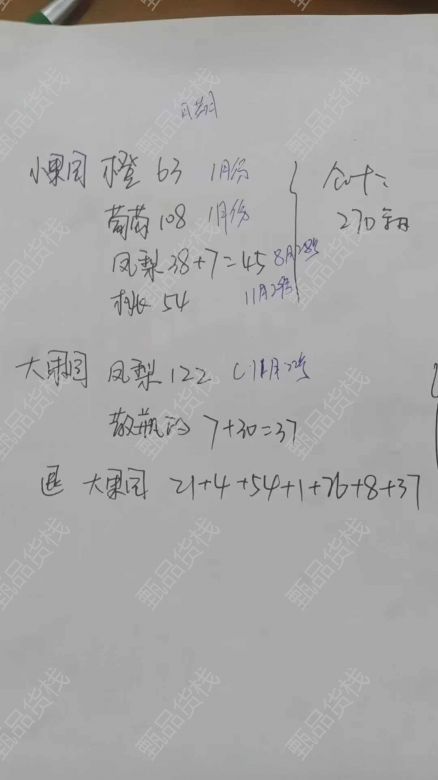 日期
小果园 橙 63 1月份
葡萄 108 1月份
凤梨 38+7=45 8月28号
桃 54 11月2号
合计:
270
大果园 凤梨 122 11月2号
散瓶的 7+30=37
退 大果园 21+4+54+1+76+8+37
甄品货栈